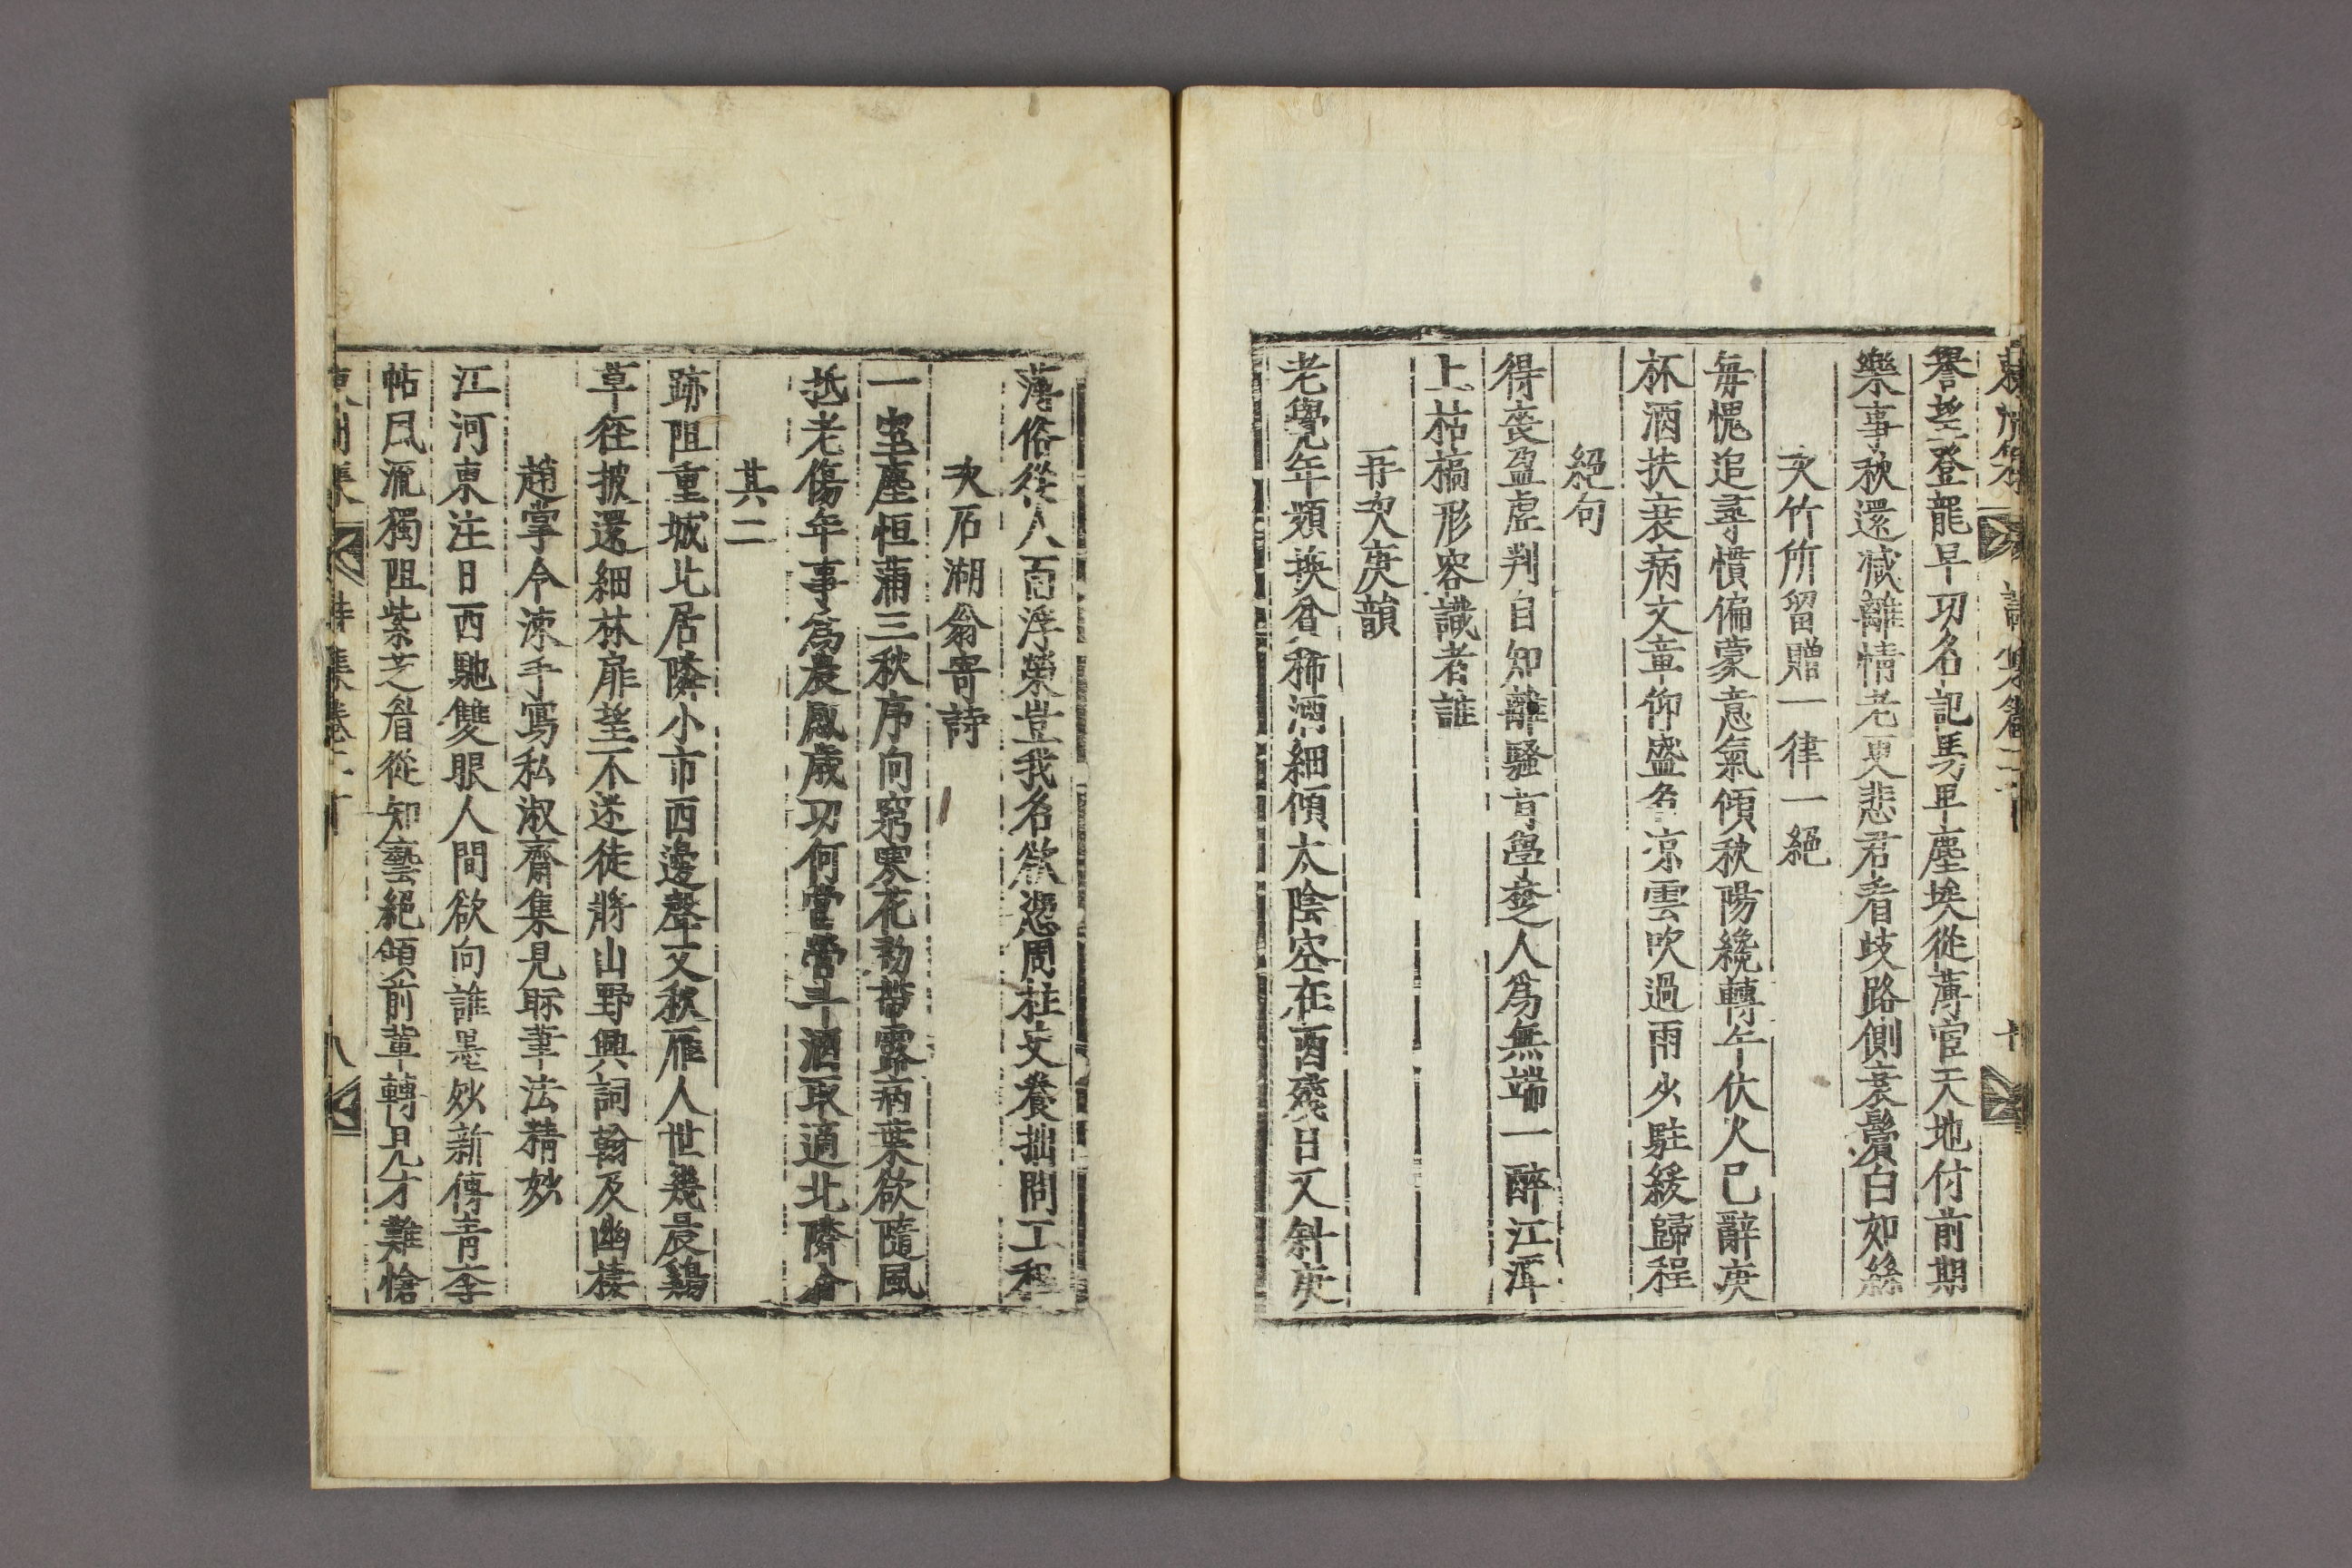 譽望登龍早功名記馬卑塵埃從薄宦天地付前期
樂事秋還减離情老更悲君看歧路側衰鬢白如絲
次竹所留贈一律一絶
每愧追尋慣偏蒙意氣傾秋陽纔轉午伏火已辭庚
杯酒扶衰病文章仰盛名凉雲吹過雨少駐緩歸程
絕句
得喪盈虛判自知離騷肓學楚人爲無端一醉江潭
上枯槁形容識者誰
再次庚韻
老覺年頻換貧稀酒細傾太陰空在酉殘日又斜庚
薄俗從人百浮榮豈我名欲憑周柱史養拙問工程
次石湖翁寄詩
一室塵恒滿三秋序向窮寒花初帶露病葉欲隨風
抵老傷年事爲農感歲功何當營斗酒取適北隣翁
其二
跡阻重城北居隣小市西邊聲又秋雁人世幾晨鷄
草徑披還細林扉望不迷徒將山野興詞翰及幽棲
趙掌令涑手寫私淑齋集見眎筆法精妙
江河東注日西馳雙眼人間欲向誰墨妙新傳靑李
帖風流獨阻紫芝眉從知藝絕傾前輩轉見才難愴
東州集 詩集卷之二十 八